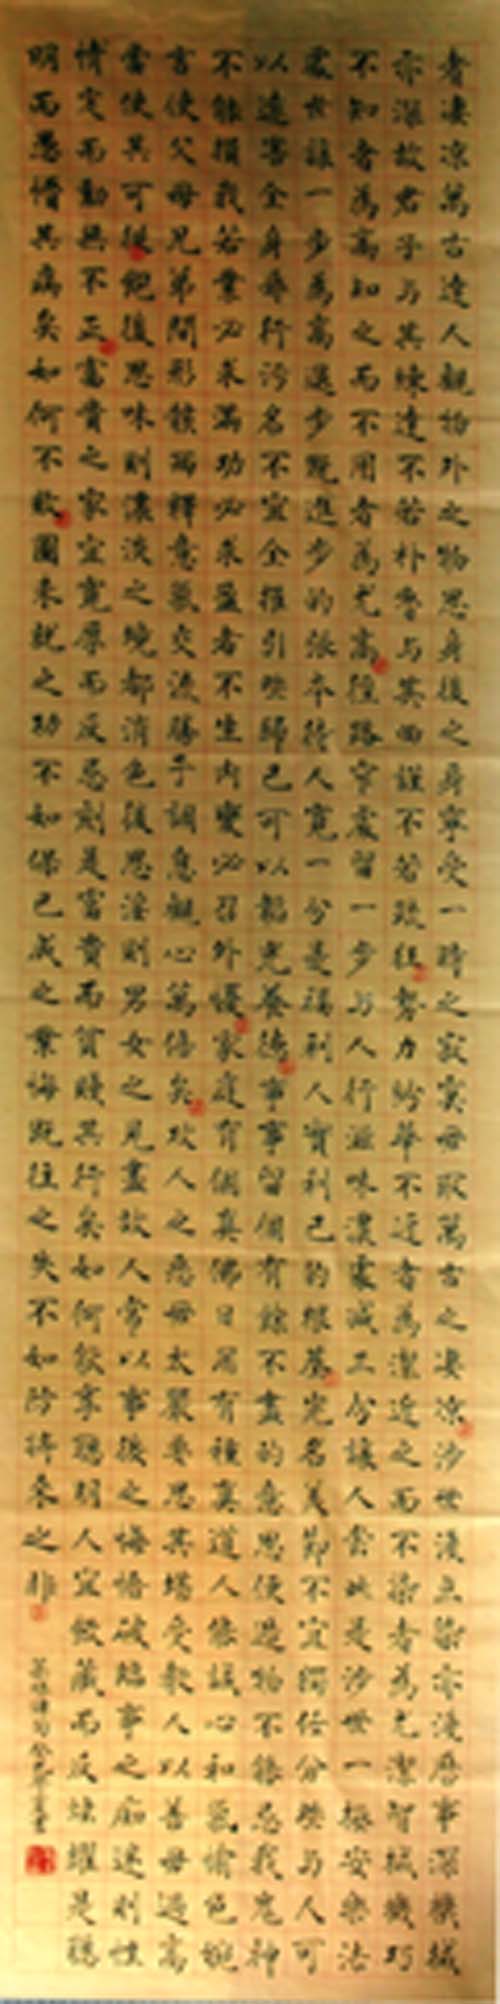 者淒涼萬古達人觀物外之物思身後之身寧受一時之寂寞毋取萬古之淒涼涉世淺点染亦淺歷事深機械
亦深故君子与其練達不若朴魯与其曲謹不若疏狂勢力紛華不近者為潔近之而不染者為尤潔智械機巧
不知者為高知之而不用者為尤高徑路窄處留一步与人行滋味濃處減三分讓人嘗此是涉世一極安樂法
處世讓一步為高退步既進步的張本待人寬一分是福利人實利己的根基完名美節不宜獨任分些与人可
以遠害全身辱行污名不宜全推引些歸己可以韜光養德事事留個有餘不盡的意思便造物不能忌我鬼神
不能損我若業必求滿功必求盈者不生內變必召外憂家庭有個真佛日用有種真道人能誠心和氣愉色婉
言使父母兄弟間形骸兩釋意氣交流勝于調息觀心萬倍矣攻人之惡毋太嚴要思其堪受教人以善毋過高
當使其可從飽後思味則濃淡之境都消色後思淫則男女之見盡故人常以事後之悔悟破臨事之痴迷則性
情定而動無不正富貴之家宜寬厚而反忌刻是富貴而貧賤其行矣如何能享聰明人宜斂藏而反炫耀是聰
明而愚懵其病矣如何不敗圖未就之功不如保已成之業悔既往之失不如防將來之非